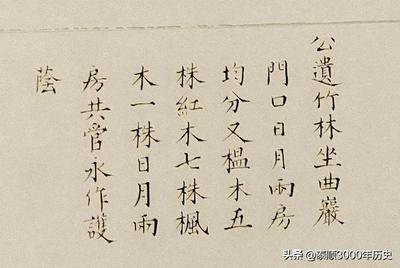 公遺竹林坐曲巖
門口日月兩房
均分又榅木五
株紅木七株楓
木一株日月兩
房共管永作護
蔭
头条 @泰顺3000年历史